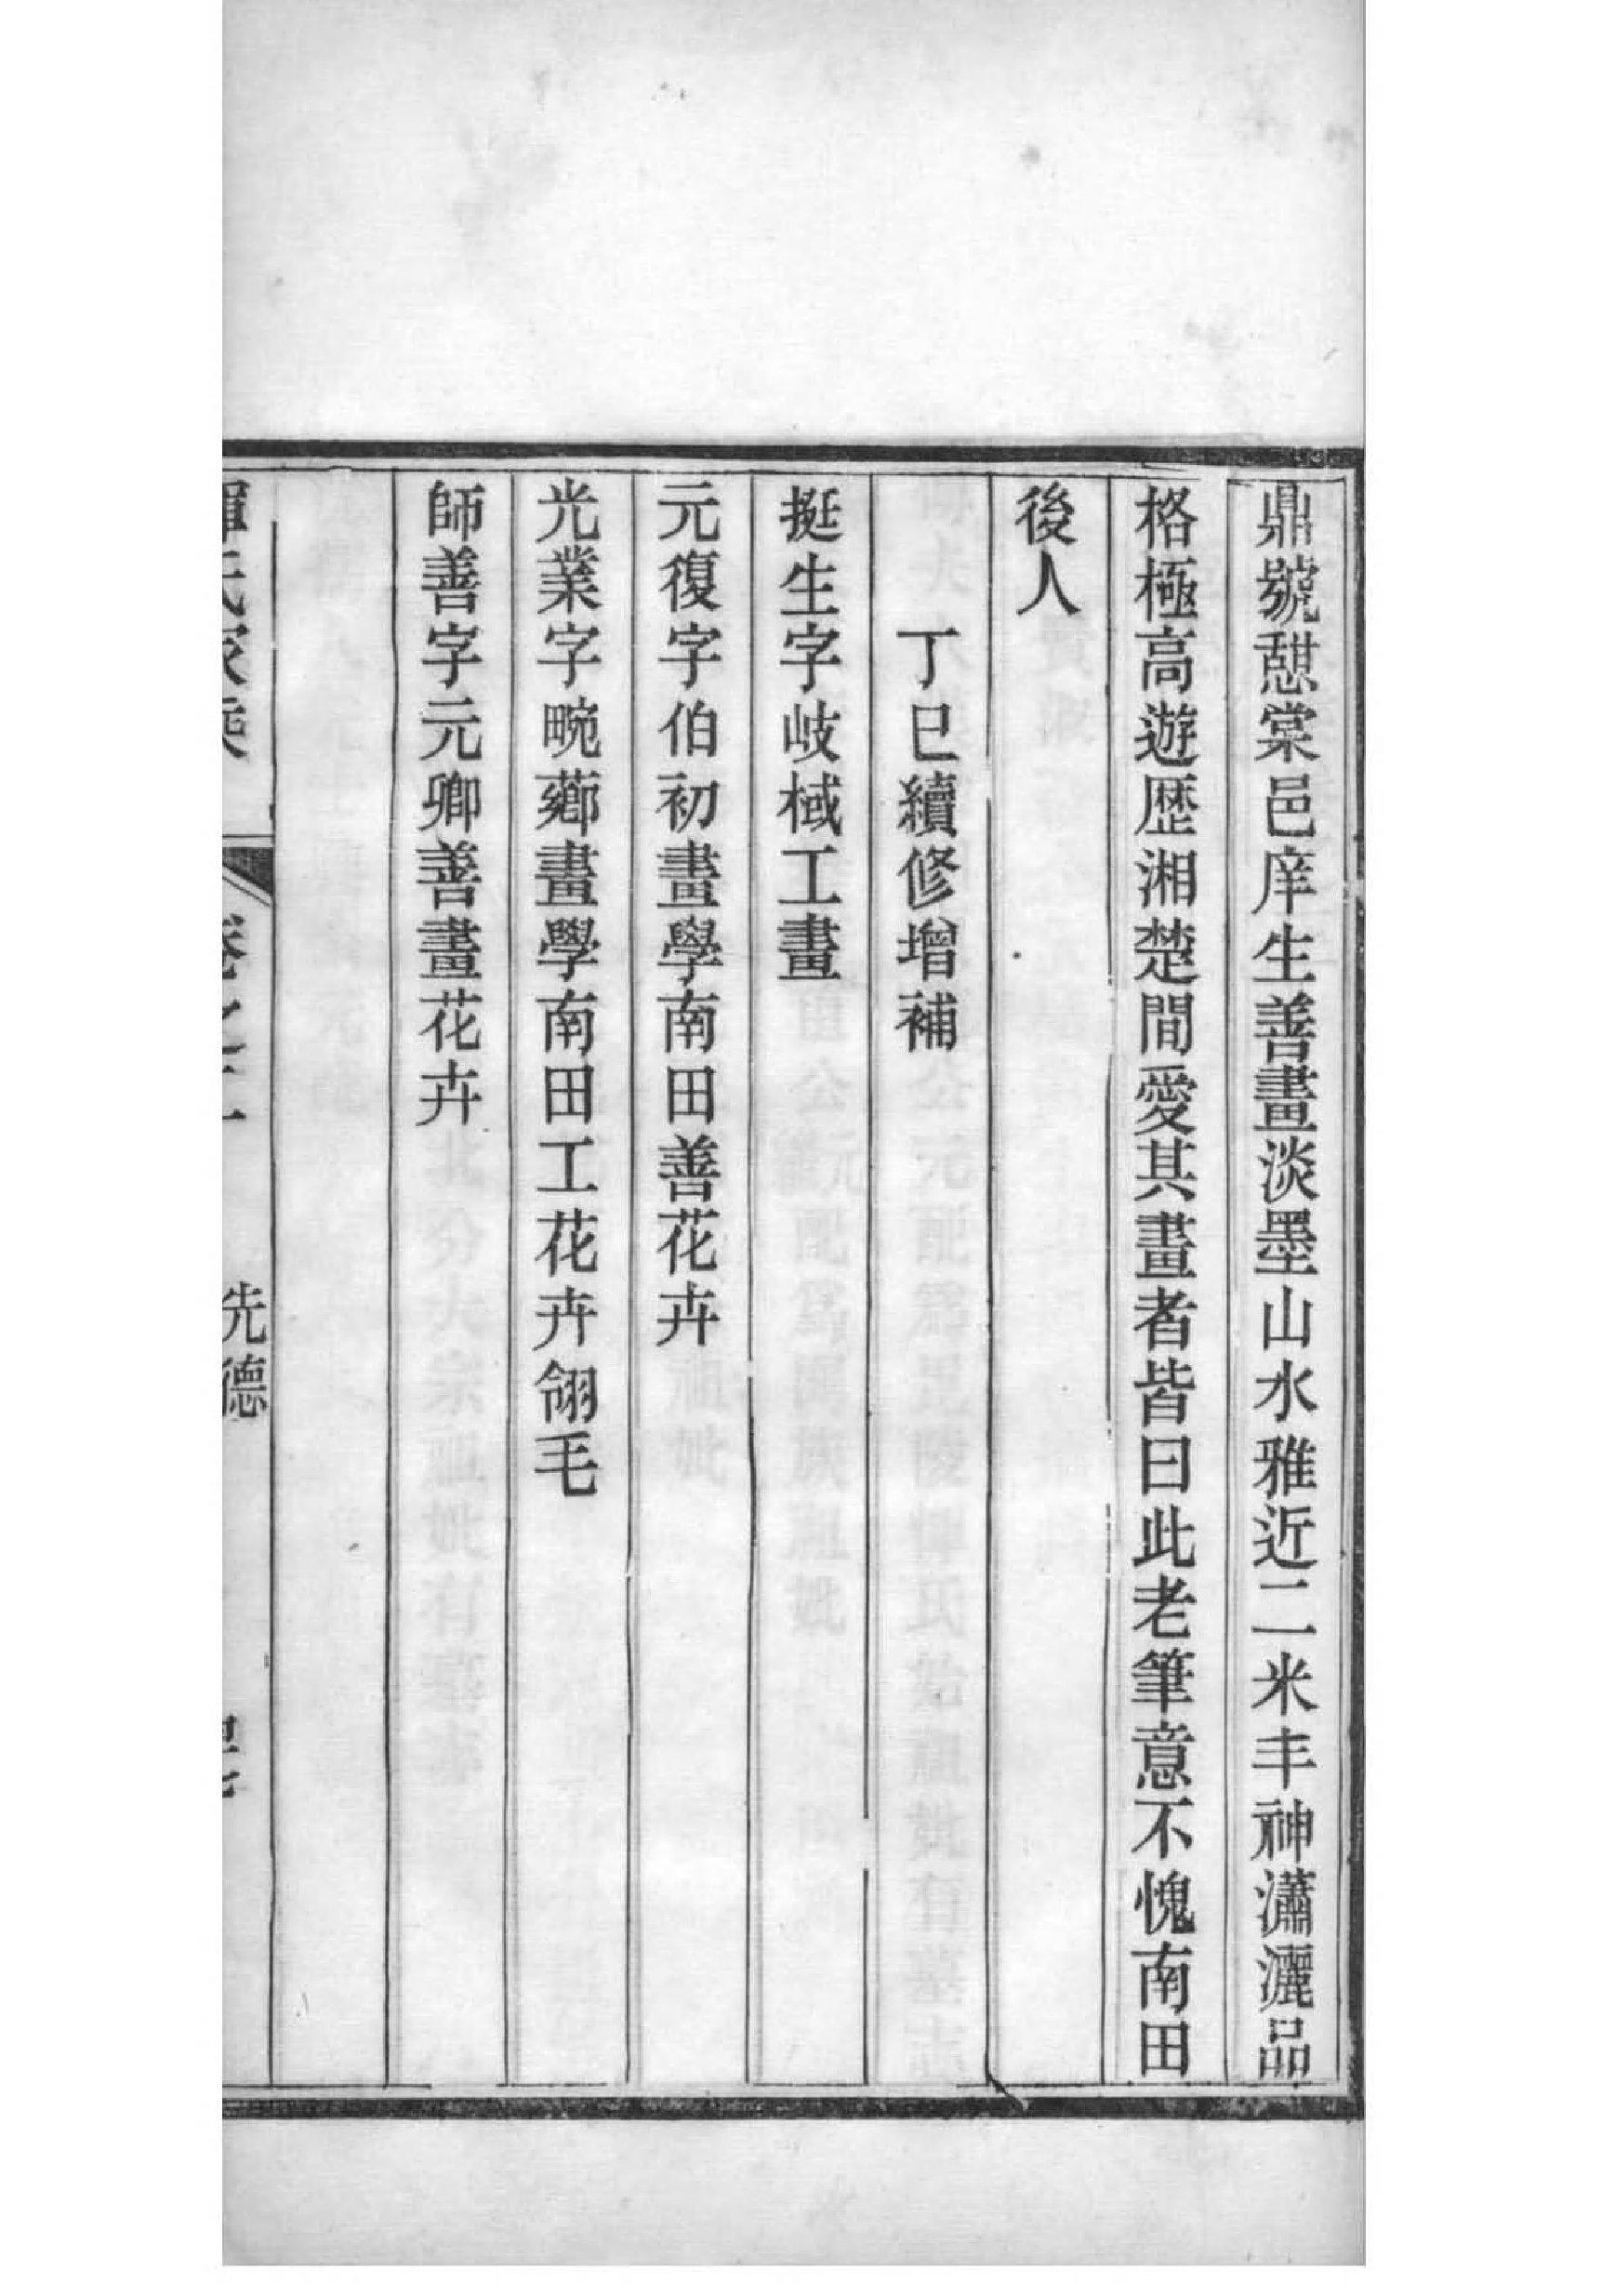 鼎號憇棠邑庠生善畫淡墨山水雅近二米丰神瀟灑品
格極高遊歴湘楚間愛其畫者皆曰此老筆意不愧南田
後人
丁巳續修增補
挺生字岐棫工畫
元復字伯初畫學南田善花卉
光業字畹薌畫學南田工花卉翎毛
師善字元卿善畫花卉
先德